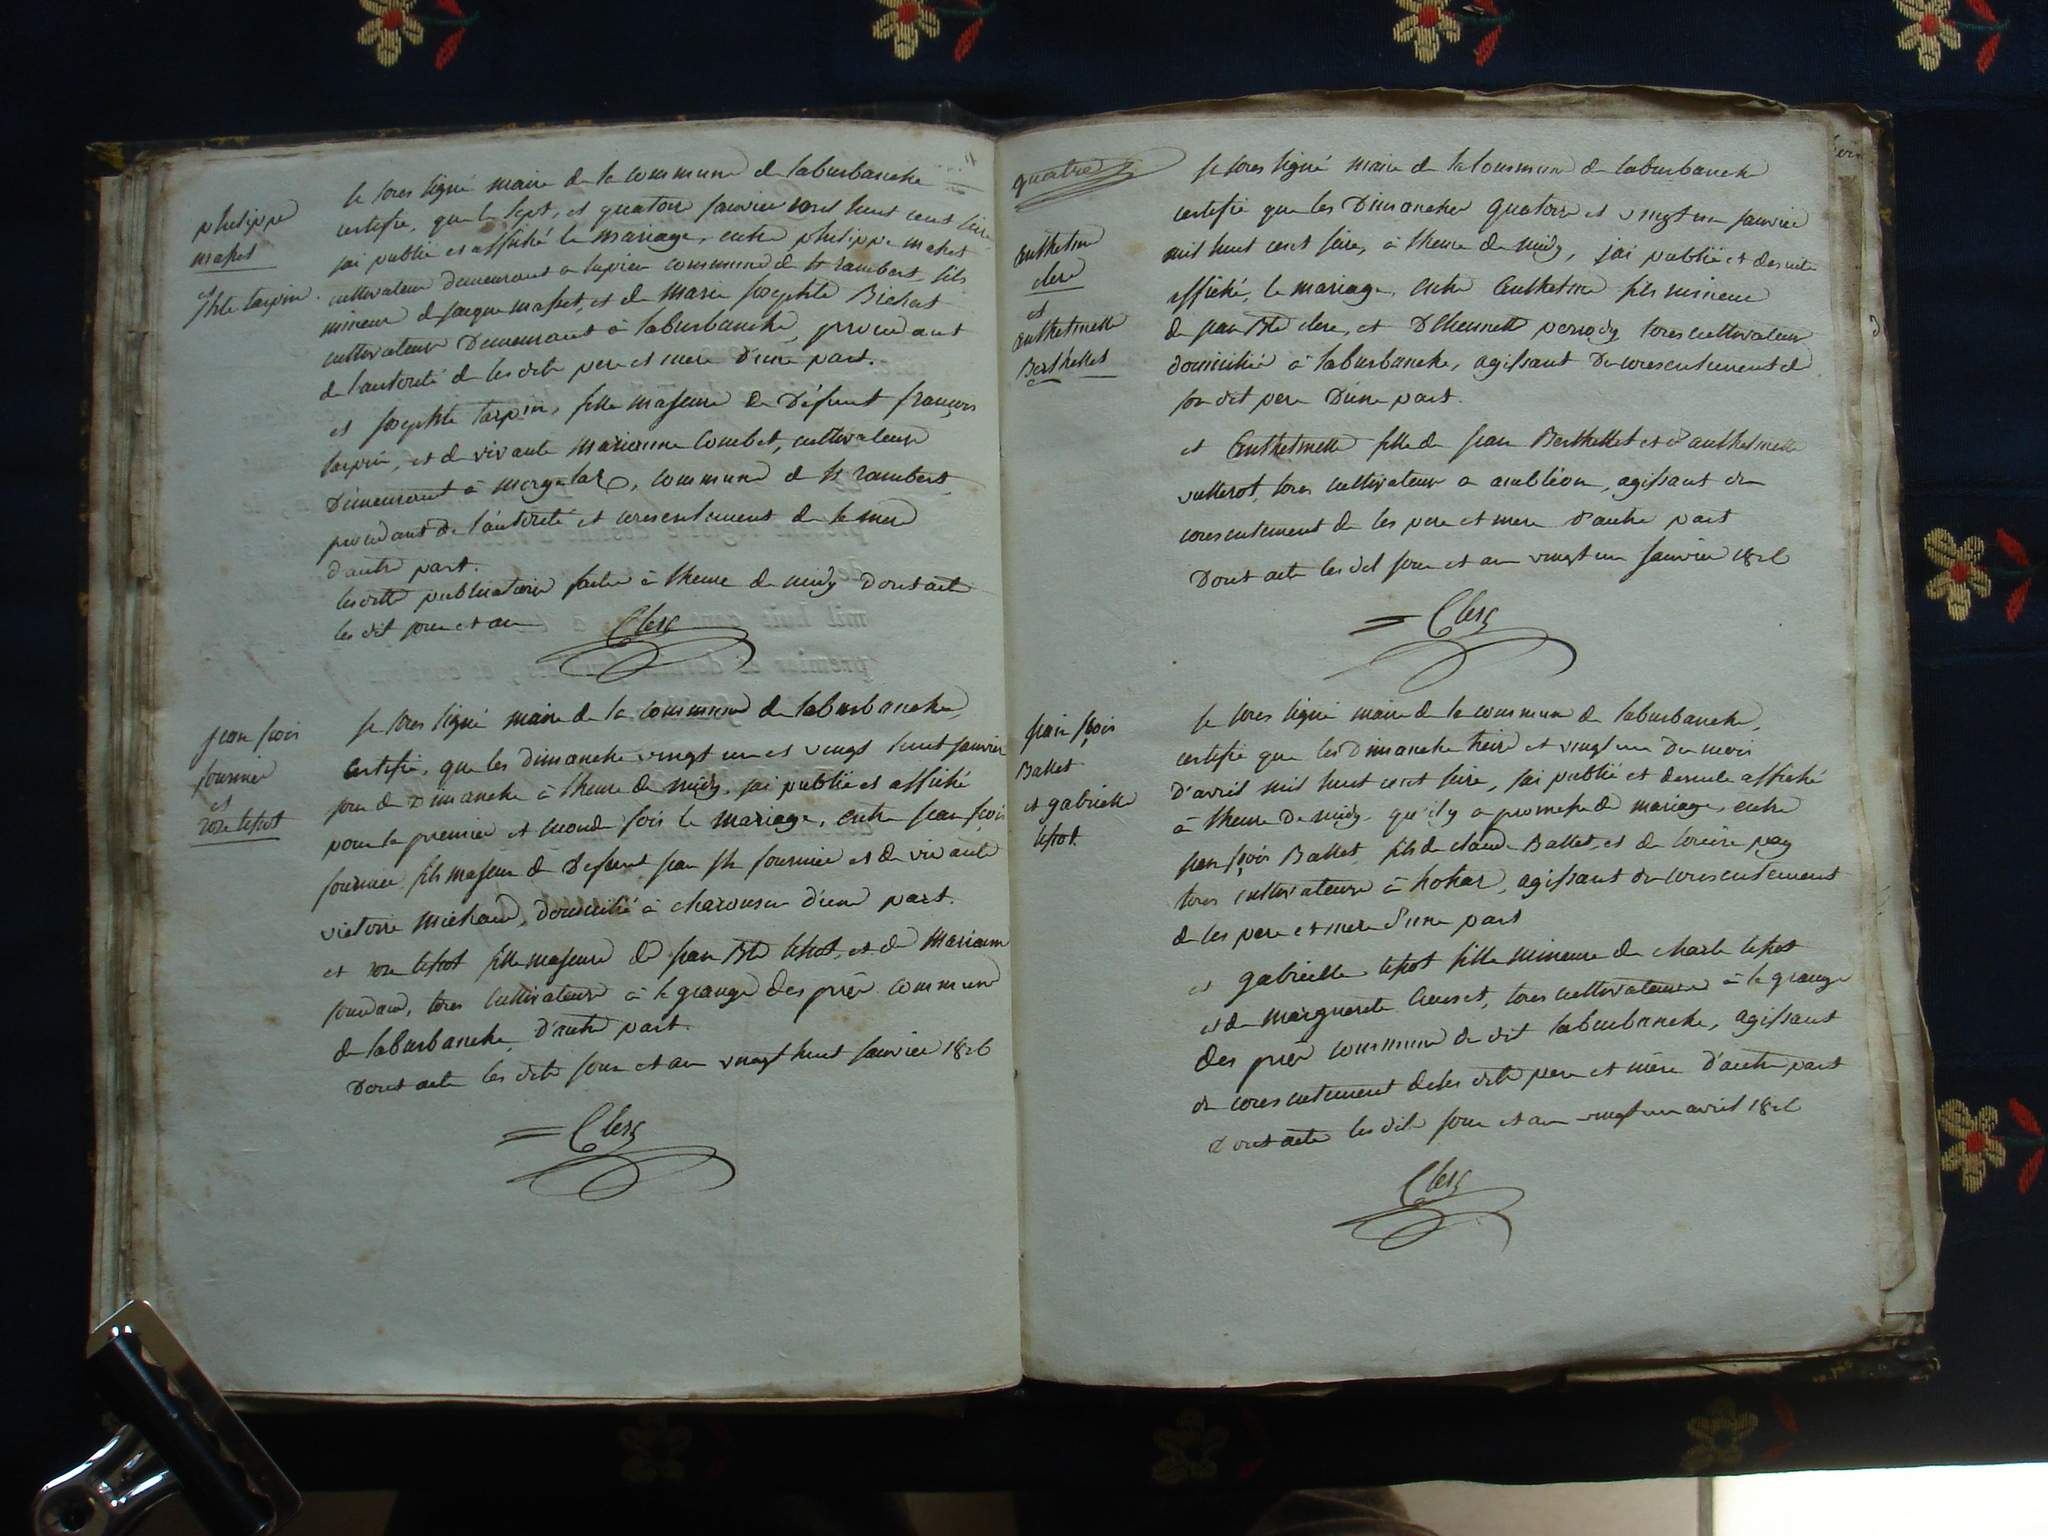 philippe
maßet
et
jhte tarpin
Je sous signé maire de la commune de laburbanche
certifie, que le sept, et quatorze janvier mil huit cent seize
jai publié et affiché le mariage, entre philippe maßet
cultivateur demeurant a commune de st rambert, fils
mineur de jacque maßet, et de marie josephte Bichat
cultivateur Demeurant à laburbanche, procedant
de l'autorité de ses dits pere et mere d'une part.
et josephte tarpin, fille majeure de Défunt françois
tarpin, et de vivante marianne Combet, cultivateur
Demeurant à morgelas, commune de st rambert
procedant de l'autorité et consentement de sa mere
d'autre part.
lesdittes publications faite à l'heure de midy Dont acte
les dit jour et an
Clerc
jean fçois
fournier
et
roze tißot
Je sous signé maire de la commune de laburbanche,
Certifie, que les dimanche vingt un et vingt huit janvier
jour de Dimanche à l'heure de midy, jai publié et affiché
pour la premiere et seconde fois le mariage, entre jean fçois
fournier fils majeur de Defunt jean jh fournier et de vivante
victoire michaud, domicilié à charoncin d'une part.
et roze tißot fille majeure de jean Bte tißot, et de Marianne
, tous cultivateurs à la grange des près commune
de laburbanche, d'autre part.
Dont acte les dits jour et an vingt huit janvier 1816
Clerc
quatre
Anthelme
clerc
et
anthelmette
Berthellet
Je sous signé maire de la Commune de laburbanche
certifie que les Dimanches quatorze et vingt un janvier
mil huit cent seize, à l'heure de midy, jai publié et de suite
affiché, le mariage, entre Anthelme fils mineur
de jean Bte clerc, et D'Etiennette perrody, tous cultivateurs
domiciliés à laburbanche, agissant du consentement de
son dit pere D'une part.
et Anthelmette fille de jean Berthellet et d'anthelmette
vullierot, tous cultivateurs a ambléon, agissant du
consentement de ses pere et mere d'autre part
Dont acte les dit jour et an vingt un janvier 1816
Clerc
jean fçois
Ballet
et gabrielle
tißot.
Je sous signé maire de la commune de laburbanche,
certifie que les Dimanche treize et vingt un du mois
D'avril mil huit cent seize, jai publié et de suite affiché
à l'heure de midy, qu'il y a promeße de mariage, entre
jean fçois Ballet, fils de claude Ballet, et de Louise pey
tous cultivateurs à , agissant du consentement
de ses pere et mere d'une part
et gabrielle tißot fille mineure de charle tißot
et de marguerite , tous cultivateurs à la grange
des près commune du dit laburbanche, agissant
du consentement de ses dits pere et mère d'autre part
Dont acte les dits jour et an vingt un avril 1816
Clerc